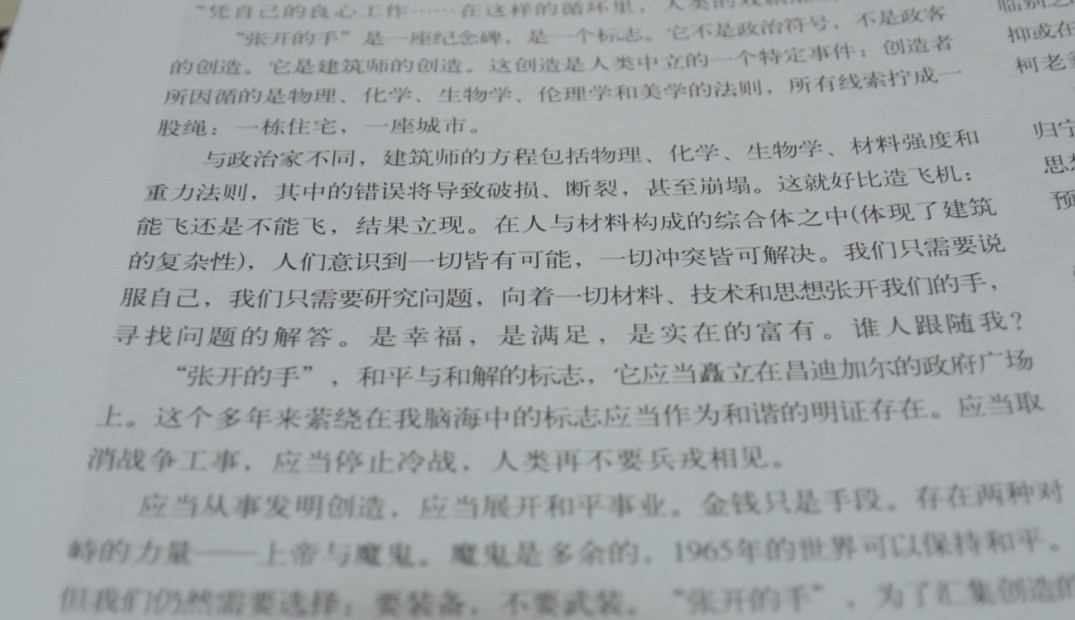 “凭自己的良心工作……在这样的循环里，人类的
“张开的手”是一座纪念碑，是一个标志。它不是政治符号，不是政客
的创造。它是建筑师的创造。这创造是人类中立的一个特定事件；创造者
所因循的是物理、化学、生物学、伦理学和美学的法则，所有线索拧成一
股绳：一栋住宅，一座城市。
与政治家不同，建筑师的方程包括物理、化学、生物学、材料强度和
重力法则，其中的错误将导致破损、断裂，甚至崩塌。这就好比造飞机：
能飞还是不能飞，结果立现。在人与材料构成的综合体之中(体现了建筑
的复杂性)，人们意识到一切皆有可能，一切冲突皆可解决。我们只需要说
服自己，我们只需要研究问题，向着一切材料、技术和思想张开我们的手，
寻找问题的解答。是幸福，是满足，是实在的富有。谁人跟随我？
“张开的手”，和平与和解的标志，它应当矗立在昌迪加尔的政府广场
上。这个多年来萦绕在我脑海中的标志应当作为和谐的明证存在。应当取
消战争工事，应当停止冷战，人类再不要兵戎相见。
应当从事发明创造，应当展开和平事业。金钱只是手段。存在两种对
峙的力量——上帝与魔鬼。魔鬼是多余的，1965年的世界可以保持和平。
但我们仍然需要选择：要装备，不要武装。“张开的手”，为了汇集创造的
抑或在
柯老
归宁
思
预